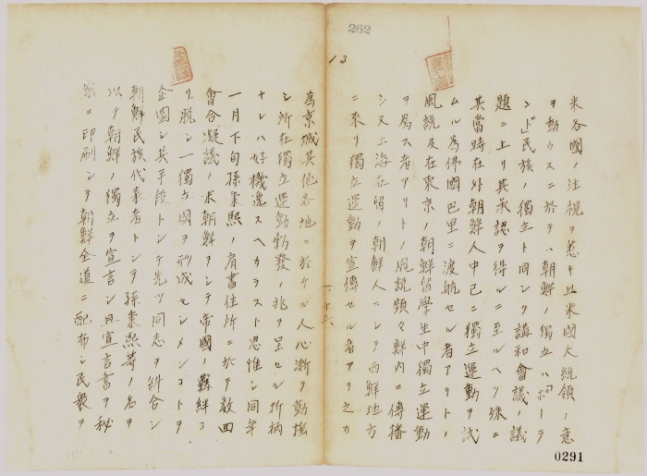 262
13
米各國ノ注視ヲ惹キ且米國大統領ノ意
ヲ動カスニ於テハ朝鮮ノ獨立ハポーラ
ンド民族ノ獨立ト同シク講和會議ノ議
題ニ上リ其承認ヲ得ルニ至ルヘク殊ニ
其當時在外朝鮮人中已ニ獨立運動ヲ試
ムル為佛國巴里ニ渡航セル者アリトノ
風說及在東京ノ朝鮮留學生中獨立運動
ヲ為ス者アリトノ風說頻々鮮内ニ傳播
シ又上海在留ノ朝鮮人ニシテ西鮮地方
ニ來リ獨立運動ヲ宣傳セル者アリ之カ
為京城其他各地ニ於ケル人心漸ク動搖
シ所在獨立運動勃發ノ兆ヲ呈セル折柄
ナレハ好機逸スヘカラスト思惟シ同年
一月下旬孫秉熙ノ肩書住所ニ於テ數回
會合凝議ノ末朝鮮ヲシテ帝國ノ羈絆ヨ
リ脱シ一獨立國ヲ形成セシメンコトヲ
企圖シ其手段トシテ先ツ同志ヲ糾合シ
朝鮮民族代表者トシテ孫秉熙等ノ名ヲ
以テ朝鮮ノ獨立ヲ宣言シ且宣言書ヲ秘
密ニ印刷シテ朝鮮全道ニ配布シ民衆ヲ
0291